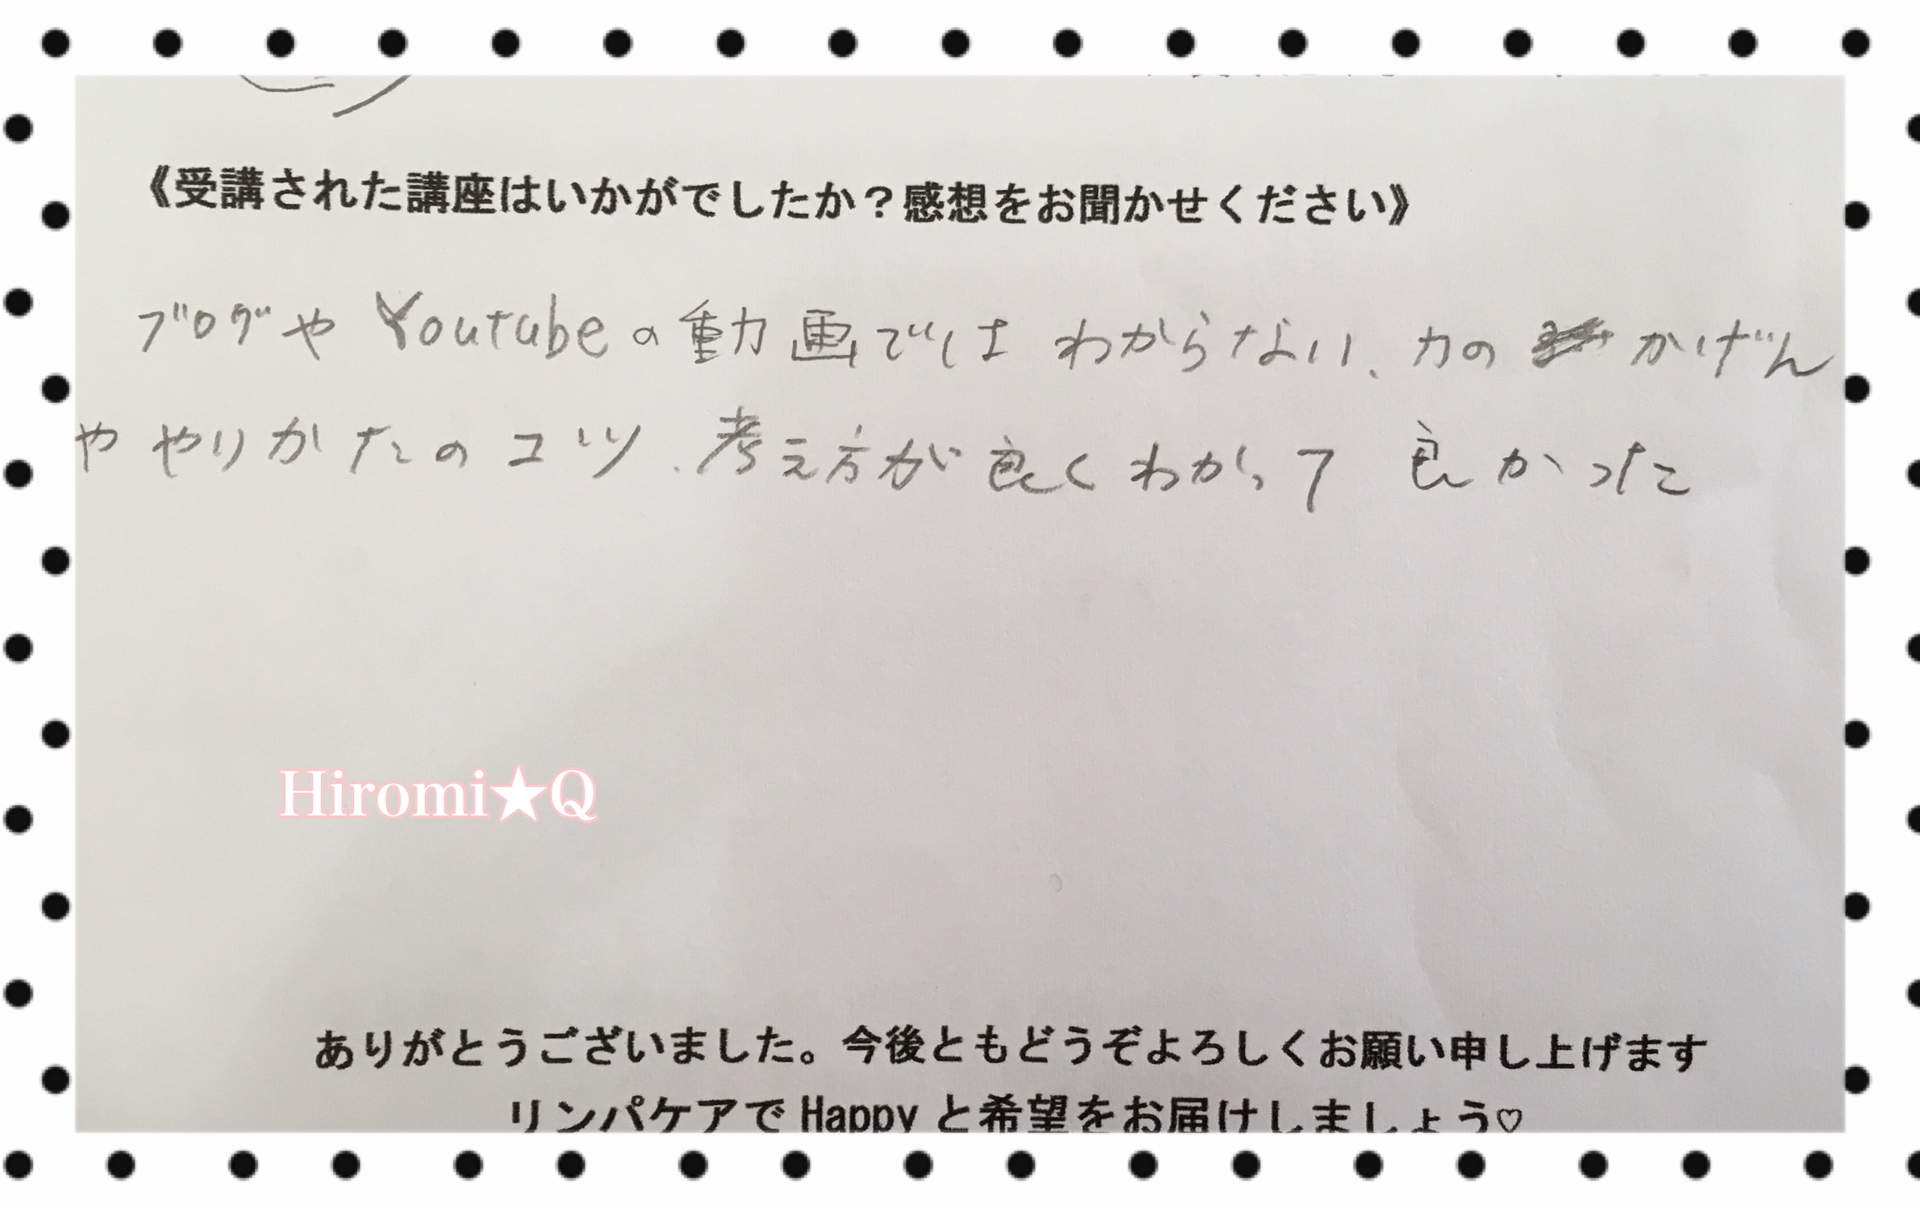 《受講された講座はいかがでしたか？感想をお聞かせください》
ブログや Youtubeの動画では わからない、力の かげん
や やりかたのコツ、考え方が良くわかって 良かった
Hiromi★Q
ありがとうございました。今後ともどうぞよろしくお願い申し上げます
リンパケアで Happy と希望をお届けしましょう♡